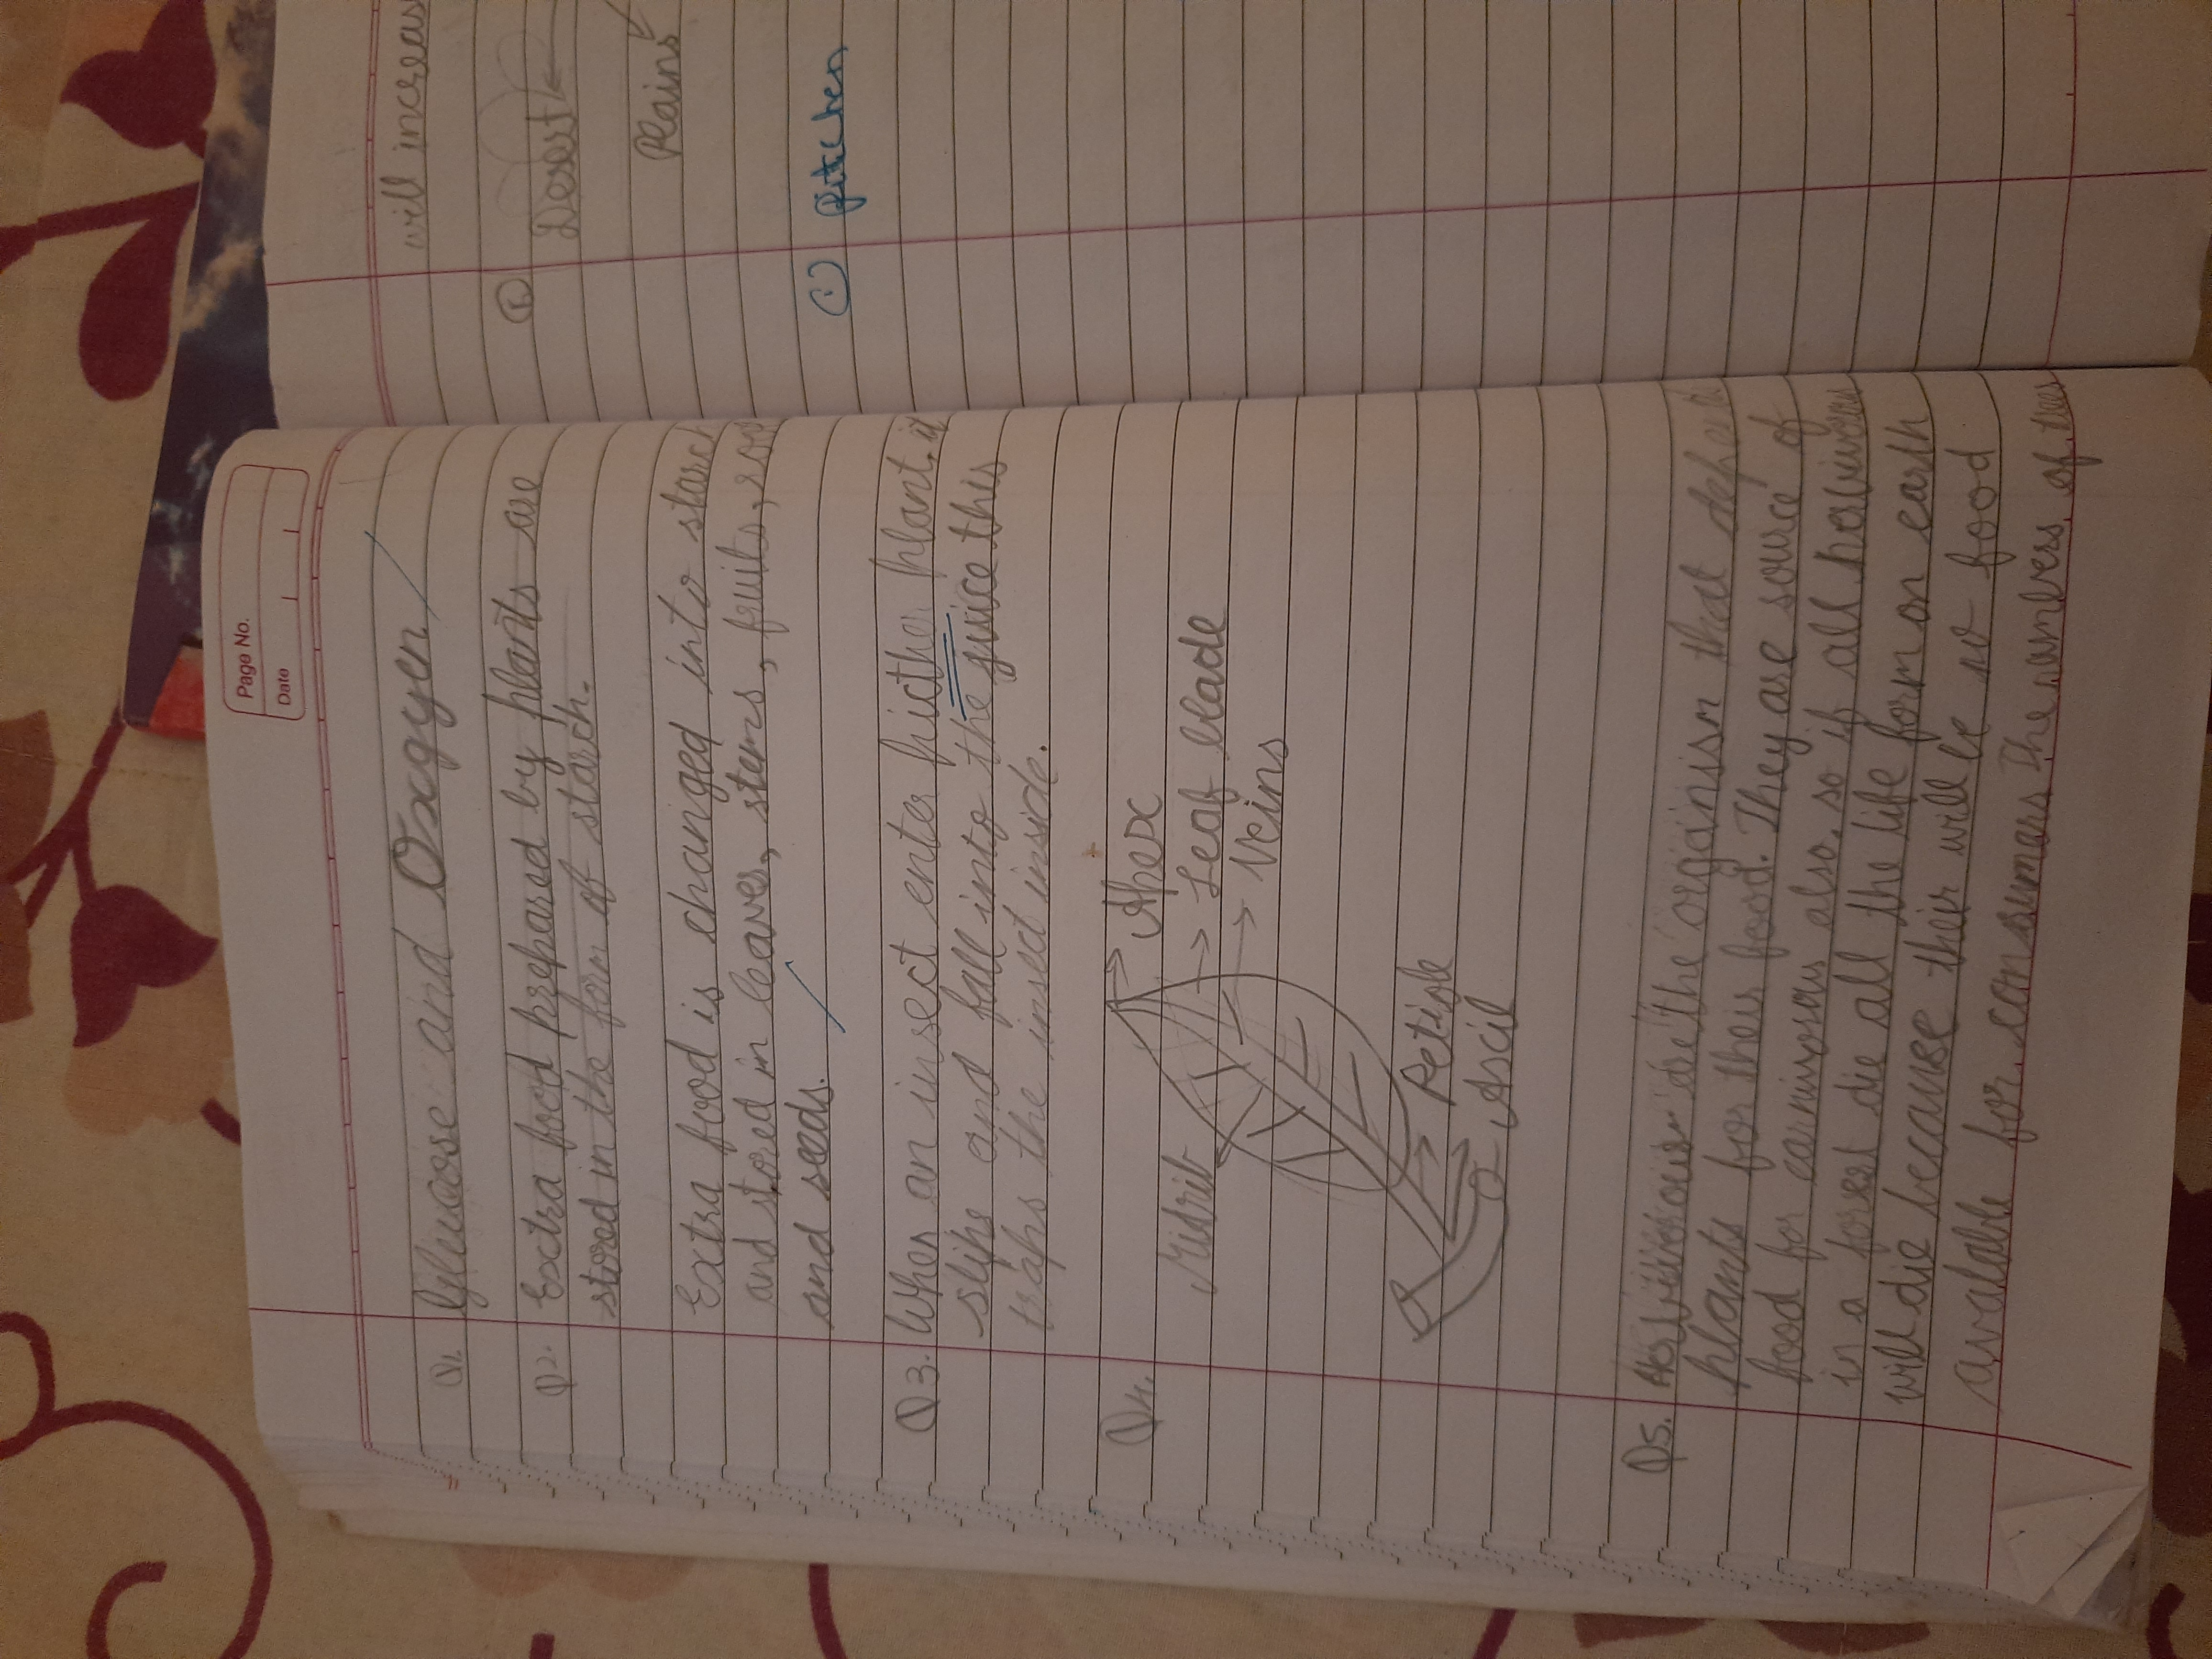 Page No.
Date
Q1. Glucose and Oxygen
Q2. Extra food prepared by plants are
stored in the form of starch.
Extra food is changed into starch
and stored in leaves, stems, fruits, roo
and seeds.
Q3. When an insect enter picther plant, it
slips and fall into the juice this
traps the insect inside.
Q4.
Apex
Midrib
Leaf blade
Veins
Petiole
Q5. are the organism that depend
plants for their food. They are source of
food for carnivorous also, so if all herbivorous
in a forest die all the life form on earth
will die because their will be no food
available for consumers The numbers of trees
will increas
Desert
Plains
pitcher